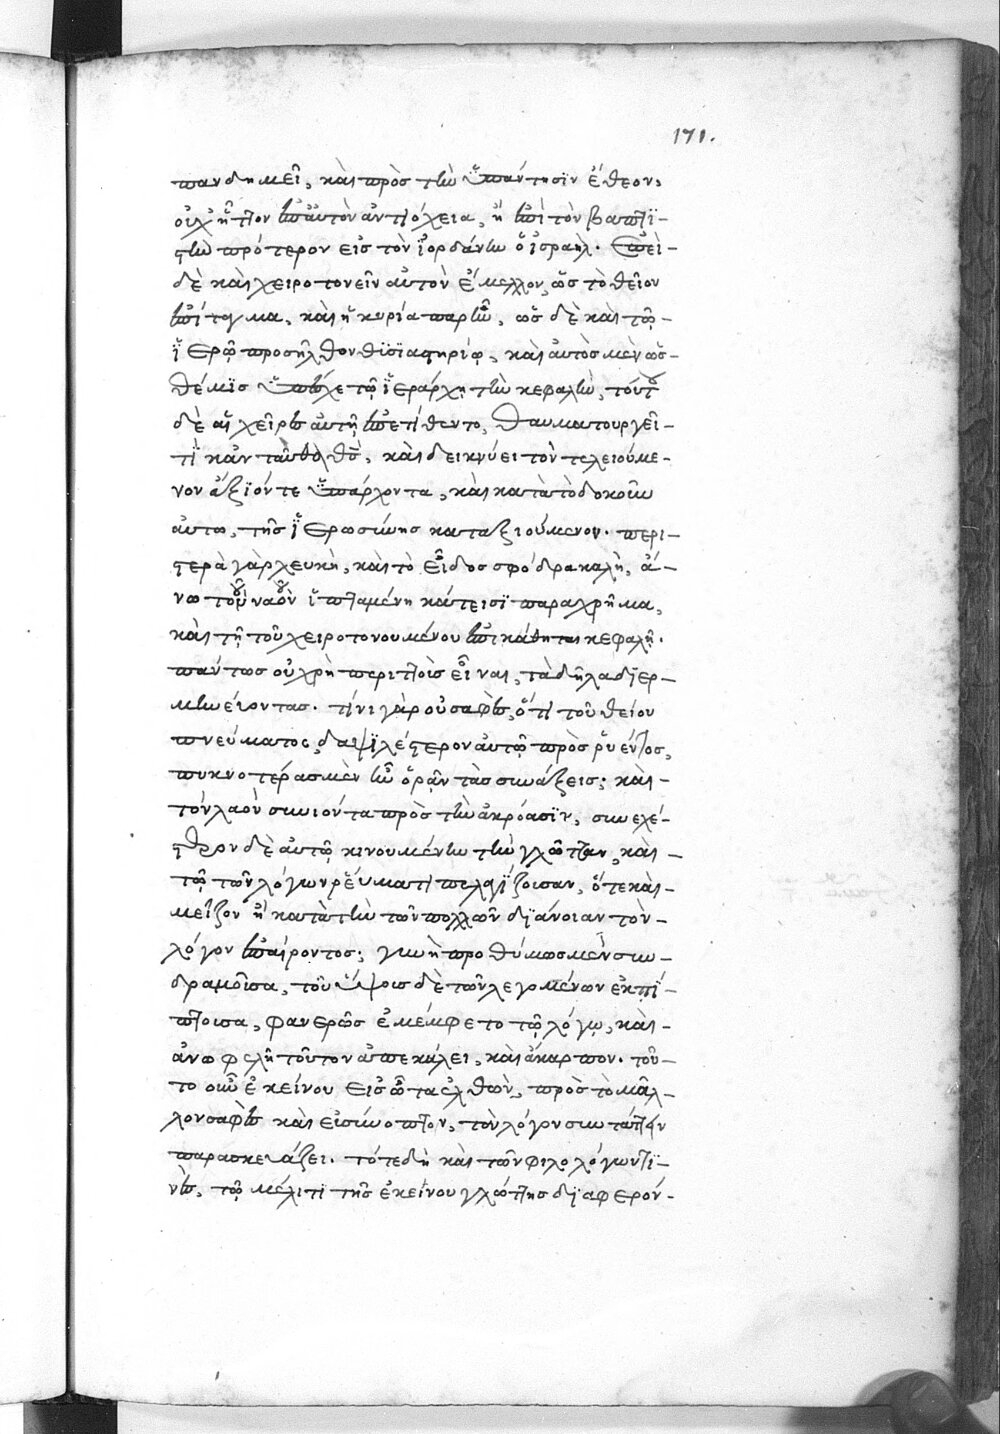 171.
πανδημεὶ, καὶ πρὸς τὴν ὑπάντησϊν ἔθεον,
οὐχ ἧττον ἐπ' αὐτὸν ἀντιόχεια, ἢ ἐπὶ τὸν βαπτϊ-
στὴν πρότερον εἰς τὸν ἰορδάνην ὁ ἰσραὴλ. Ἐπεὶ-
δὲ καὶ χειροτονεῖν αὐτὸν ἔμελλον, ὡς τὸ θεῖον
ἐπίταγμα, καὶ ἡ κυρία παρῆν, ὡς δὲ καὶ τῷ-
ἱερῷ προσῆλθον θϋσϊαστηρίῳ, καὶ αὐτὸς μὲν ὡς-
θέμϊς ὑπέσχε τῷ ἱεράρχῃ τὴν κεφαλὴν, τούτου
δὲ αἱ χεῖρες αὐτῇ ἐπετίθεντο, θαυματουργεῖ-
τὶ κἀν ταῦθα θεὸς, καὶ δεικνύει τὸν τελειούμε-
νον ἄξϊόν τε ὑπάρχοντα, καὶ κατὰ τὸ δοκοῦν
αὐτω, τῆς ἱερωσύνης καταξιούμενον. περι-
στερὰ γὰρ λευκὴ, καὶ τὸ εἶδος σφόδρα καλὴ, ἄ-
νω τοῦ ναοῦ ἱπταμένη κάτεισϊ παραχρῆμα,
καὶ τῇ τοῦ χειροτονουμένου ἐπικάθηται κεφαλῇ.
πάντως οὐ χρὴ περιττοὺς εἶναι, τὰ δῆλα δϊερ-
μηνεύοντας. τίνι γὰρ οὐ σαφὲς, ὅτι τοῦ θείου
πνεύματος δαψϊλέστερον αὐτῷ προσρυέντος,
πυκνοτέρας μὲν ἦν ὁρᾷν τὰς συνάξεις; καὶ-
τὸν λαὸν συνιόντα πρὸς τὴν ἀκρόασϊν, συνεχέ-
στερον δὲ αὐτῷ κινουμένην τὴν γλῶτταν, καὶ-
τῷ τῶν λόγων ῥεύματι πελαγΐζουσαν, ὅτε καὶ-
μεῖζον ἢ κατὰ τὴν τῶν πολλῶν δϊάνοιαν τὸν-
λόγον ἐπαίροντος; γυνὴ προθύμως μὲν συν-
δραμοῦσα, τοῦ ὕψους δὲ τῶν λεγομένων ἐκπί-
πτουσα, φανερῶς ἐμέμφετο τῷ λόγῳ, καὶ-
ἀνωφελῆ τοῦτον ἀπεκάλει, καὶ ἄκαρπον. τοῦ-
το οὖν ἐκείνου εἰς ὦτα ἐλθὼν, πρὸς τὸ μᾶλ-
λον σαφὲς καὶ εὐσύνοπτον, τὸν λόγον συντάττειν
παρασκευάζει. τότε δὴ καὶ τῶν φιλολόγων τϊ-
νὲς, τῷ μέλιτι τῆς ἐκείνου γλώττης δϊαφερόν-